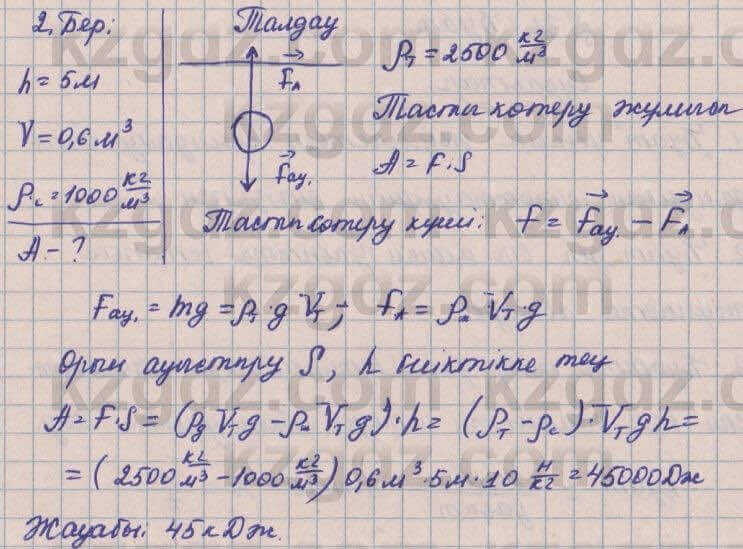 2. Бер: Талдау
h = 5м
V = 0,6 м³
ρс = 1000 кг/м³
A - ?
F⃗л
F⃗ау.
ρт = 2500 кг/м³
Тасты көтеру жұмысы
A = F·S
Тастың көтеру күші: F = F⃗ау. − F⃗л
Fау. = mg = ρт·g Vт; Fл = ρл Vт·g
Орын ауыстыру S, h биіктікке тең
A = F·S = (ρд Vт g − ρл Vт g)·h = (ρт − ρс)·Vт g h =
= (2500 кг/м³ − 1000 кг/м³) 0,6 м³·5м·10 Н/кг = 45000 Дж
Жауабы: 45 кДж.
kzgdz.com